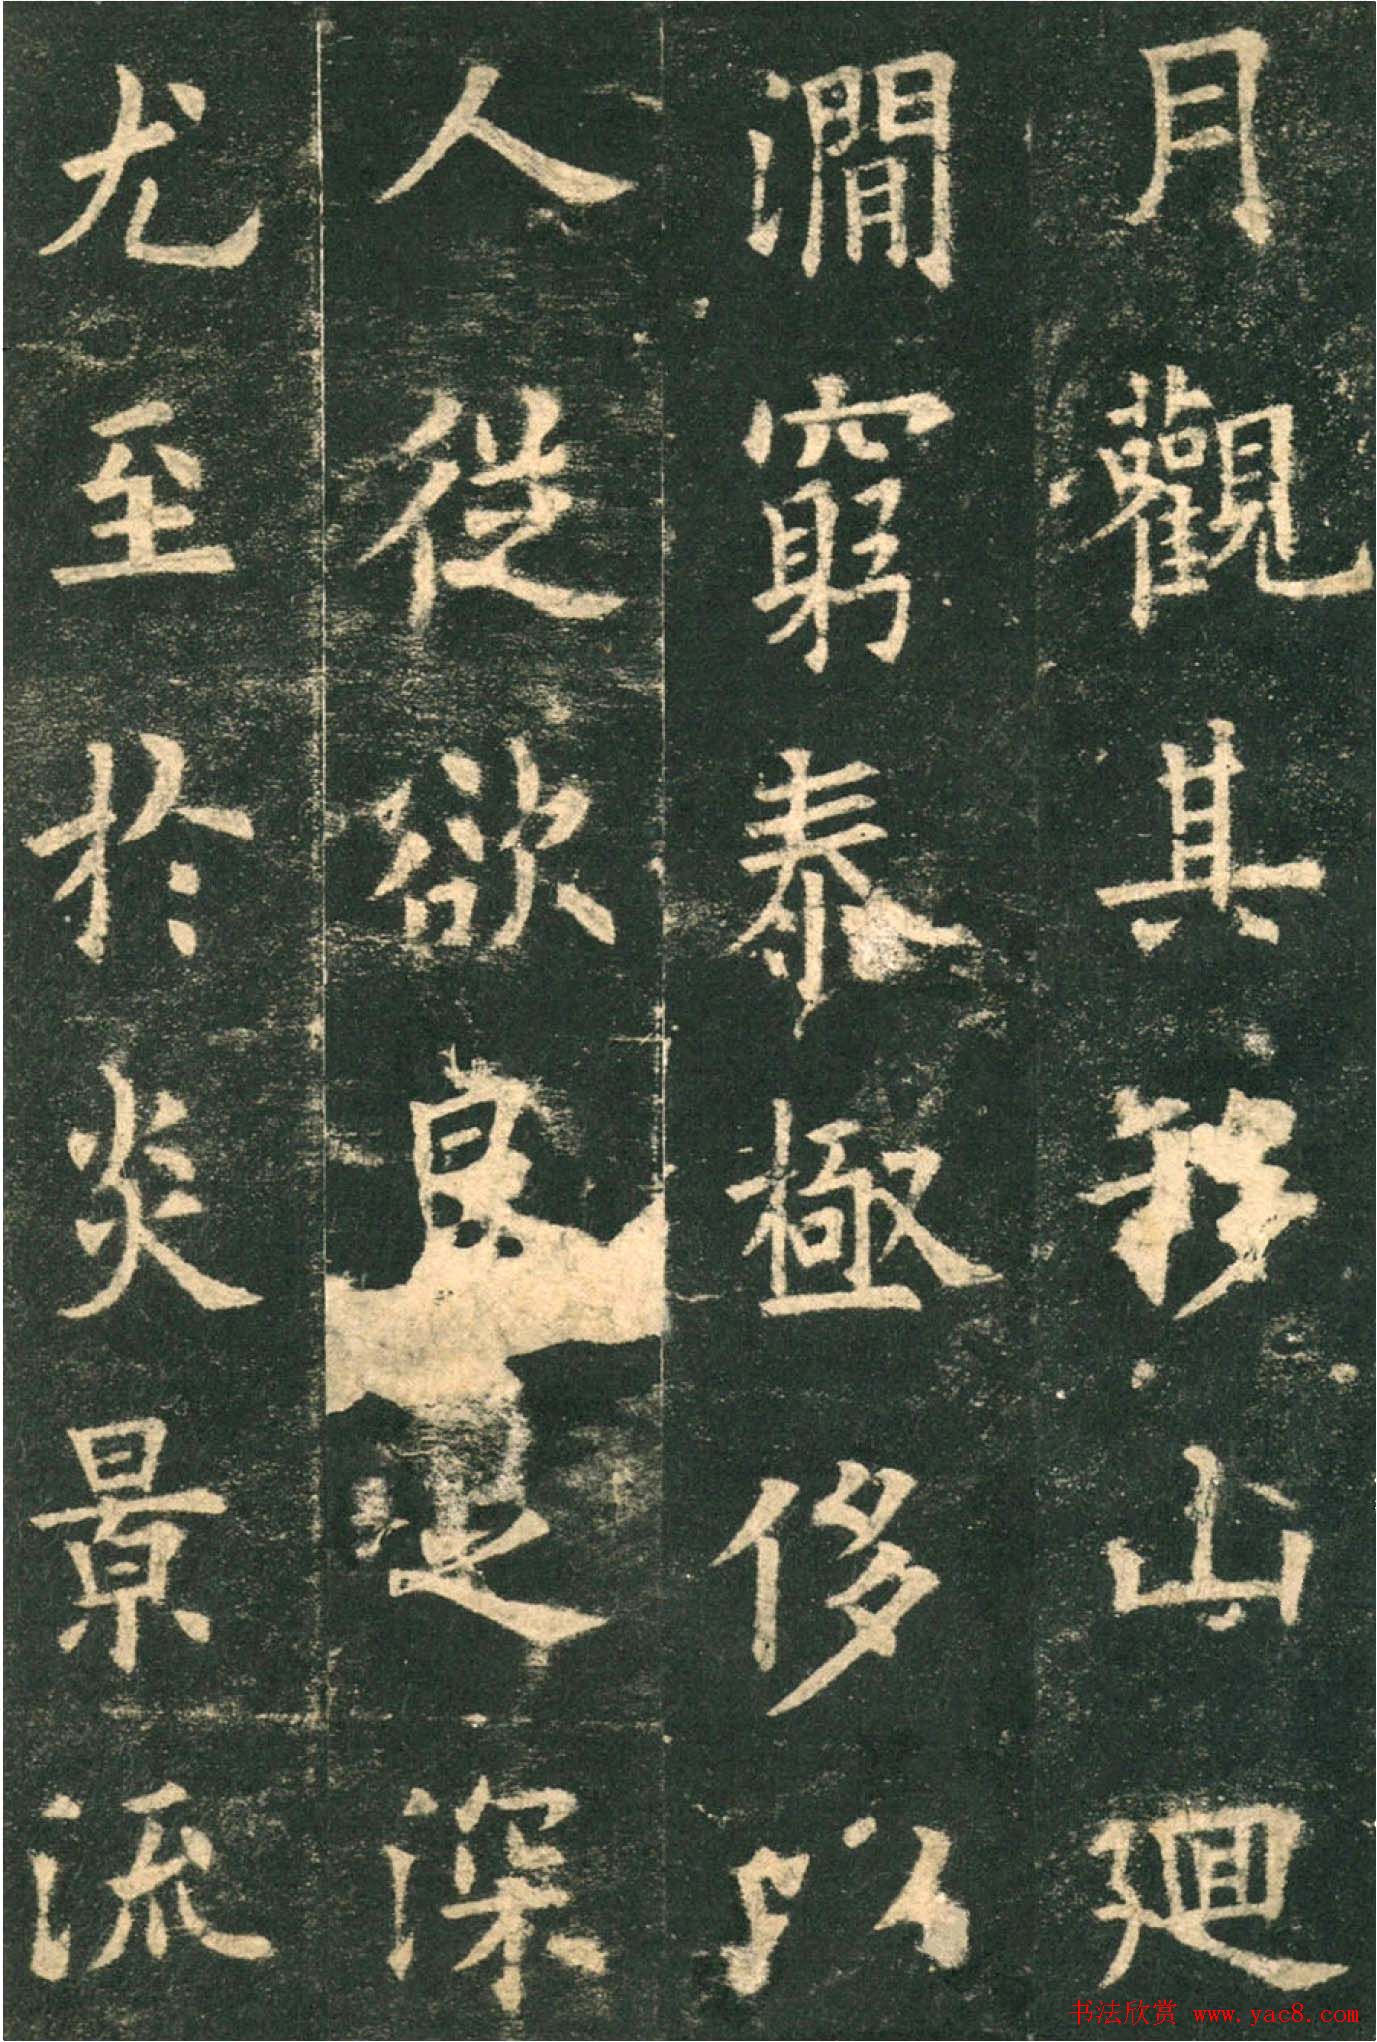 月觀其移山廻
澗窮泰極侈以
人從欲良足深
尤至於炎景流
书法欣赏 www.yac8.com